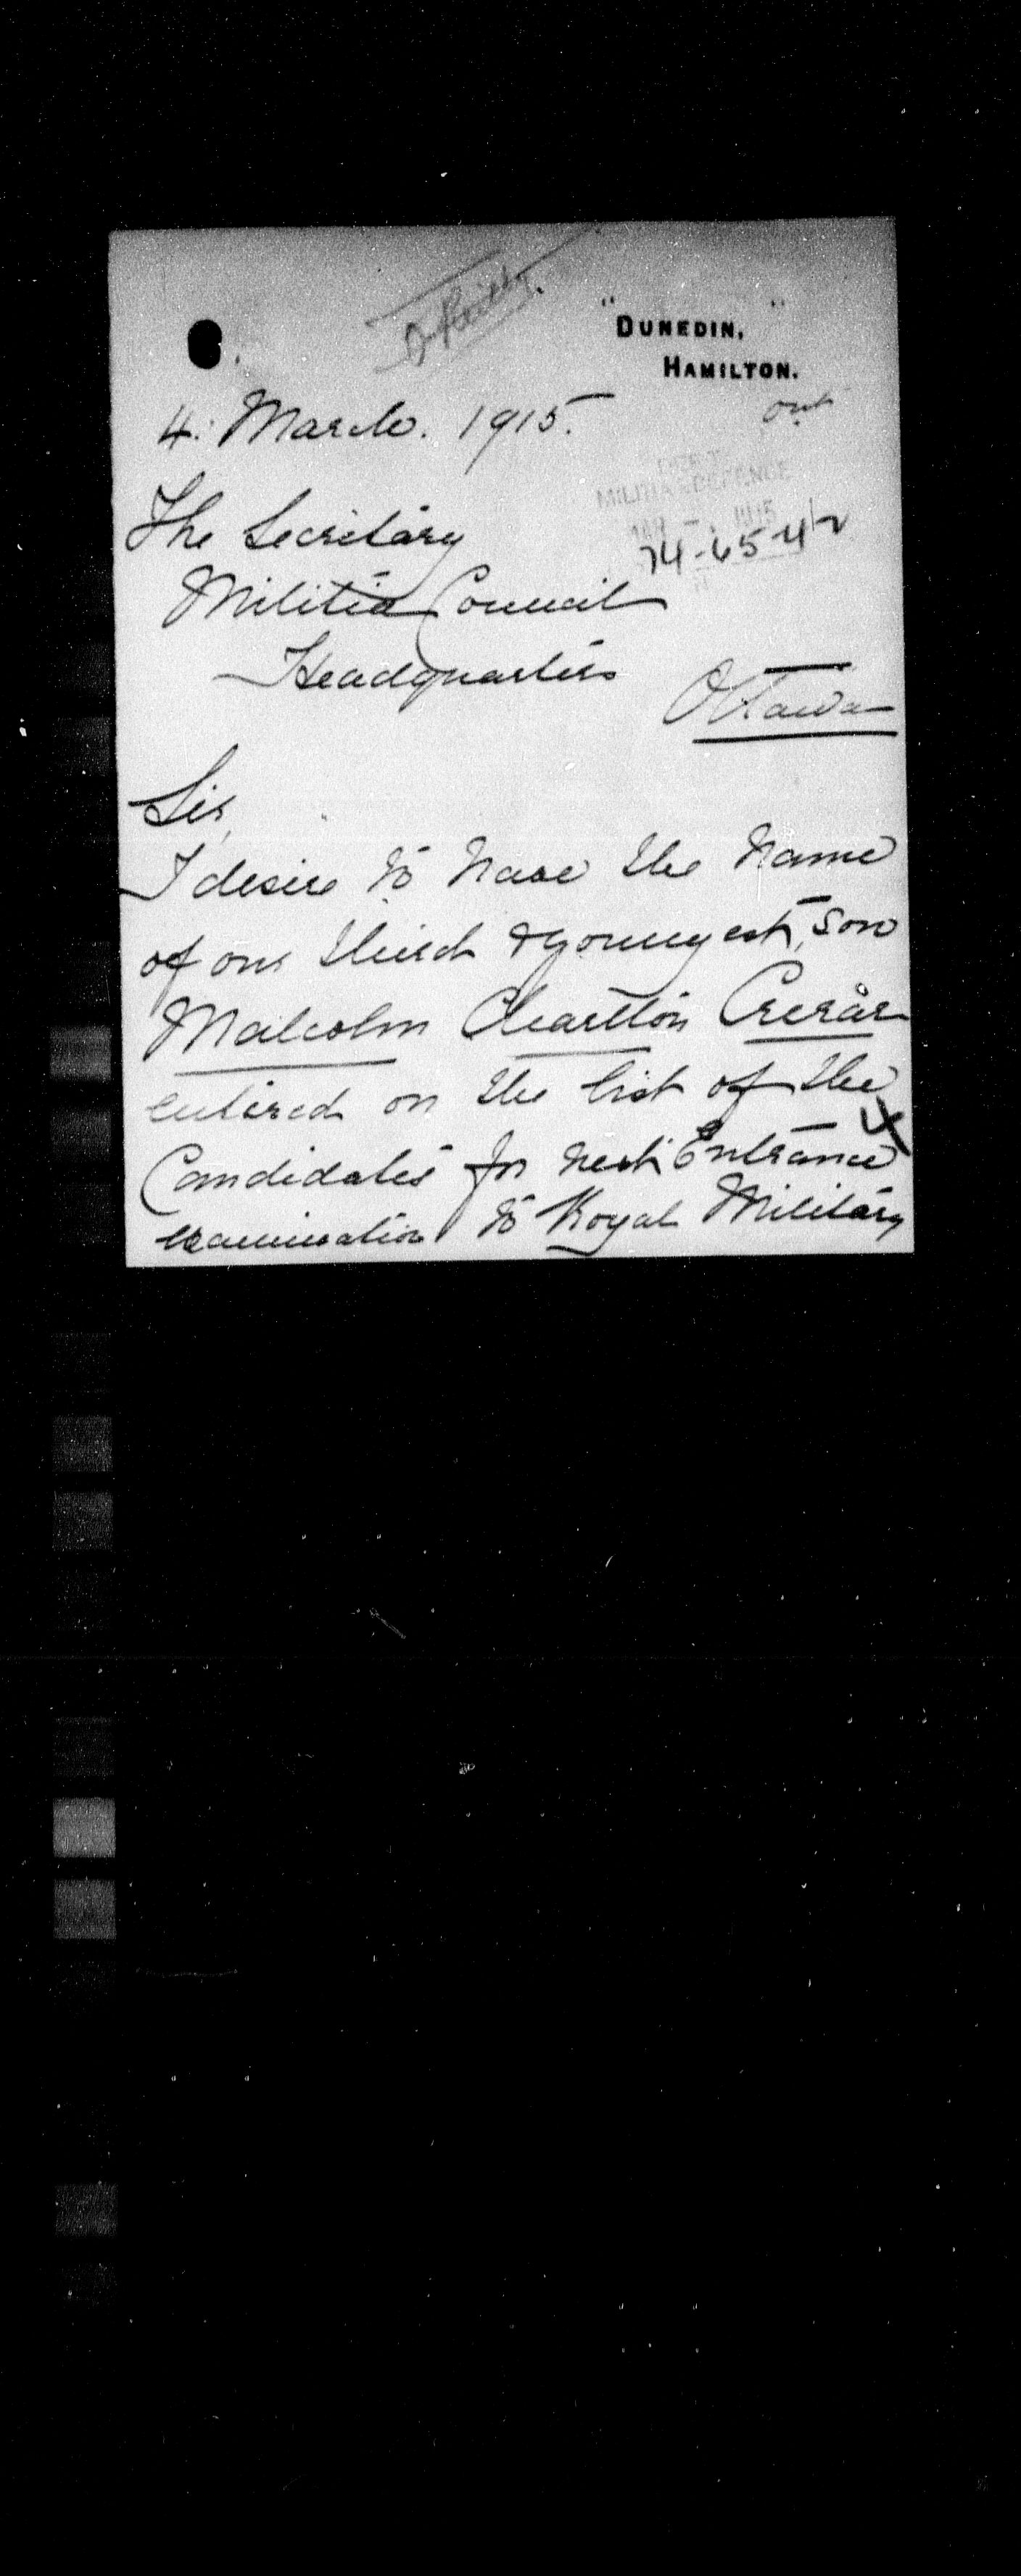 "DUNEDIN,"
HAMILTON.
out
4. March. 1915.
DEP'T
MILITIA & DEFENCE
1915
74-65-4/2
The Secretary
Militia Council
Headquarters
Ottawa
Sir,
I desire to have the name
of our third & youngest, son
Malcolm Charlton Crerar
entered on the list of the
Candidates for next Entrance
examination to Royal Military